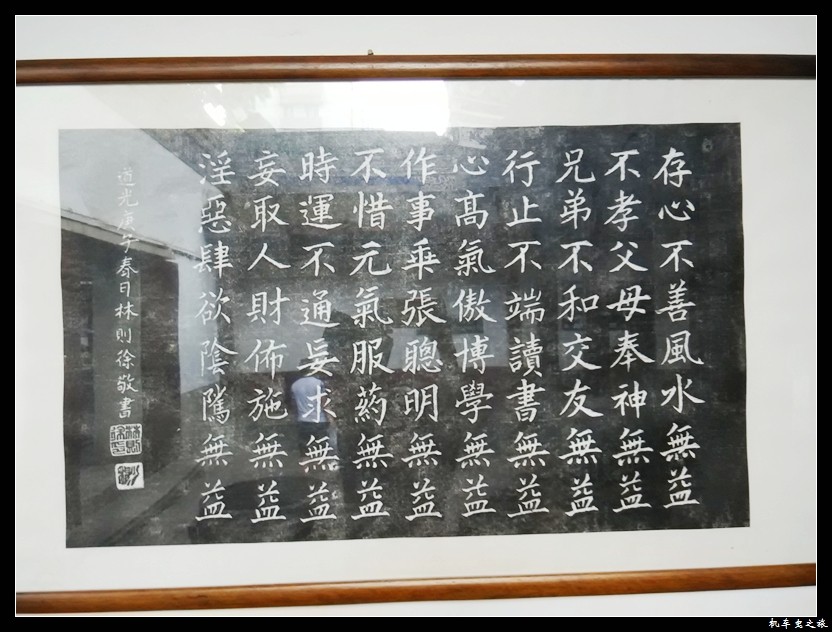 存心不善風水無益
不孝父母奉神無益
兄弟不和交友無益
行止不端讀書無益
心高氣傲博學無益
作事乘張聰明無益
不惜元氣服藥無益
時運不通妄求無益
妄取人財佈施無益
淫惡肆欲陰騭無益
道光庚子春日林則徐敬書
机车虫之旅